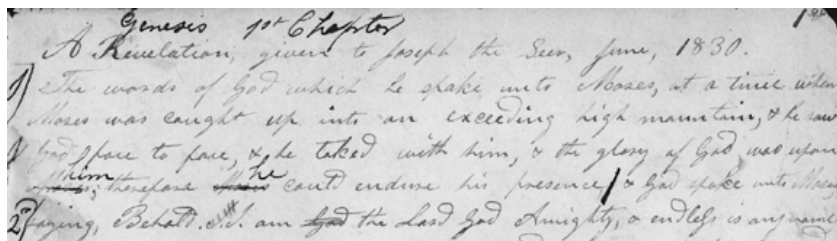 Genesis 1st Chapter
A Revelation, given to Joseph the Seer, June, 1830.
1) The words of God which he spake unto Moses, at a time when
Moses was caught up into an exceeding high mountain, & he saw
God face to face, & he talked with him, & the glory of God was upon
him; therefore he could endure his presence / & God spake unto Moses
2) saying, Behold. I am God the Lord God Almighty, & endless is my name